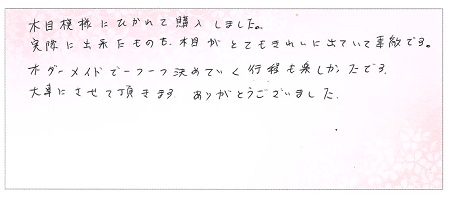 木目模様にひかれて購入しました。
実際に出来たものも、木目がとてもきれいに出ていて素敵です。
オーダーメイドで一つ一つ決めていく行程も楽しかったです。
大事にさせて頂きます。ありがとうございました。